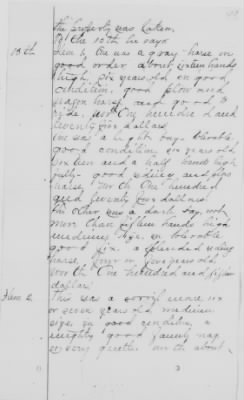 the property was taken.
Of the 10th he says
Item 1, One was a gray horse in
good order about sixteen hands
high six years old in good
condition, good plow and
wagon horse and good to
ride. Worth One hundred and
seventy five dollars
One was a light bay tolerable
good condition six years old
sixteen and a half hands high
good saddle and
horse, Worth One hundred
and seventy five dollars
The other was a dark bay, not
more than fifteen hands high
medium size, in tolerable
good fix. a splendid
horse, four or five years old
worth One hundred and fifteen
dollars
Item 2. This was a sorrel mare six
or seven years old medium
size in good condition, a
mighty good family nag
very gentle worth about